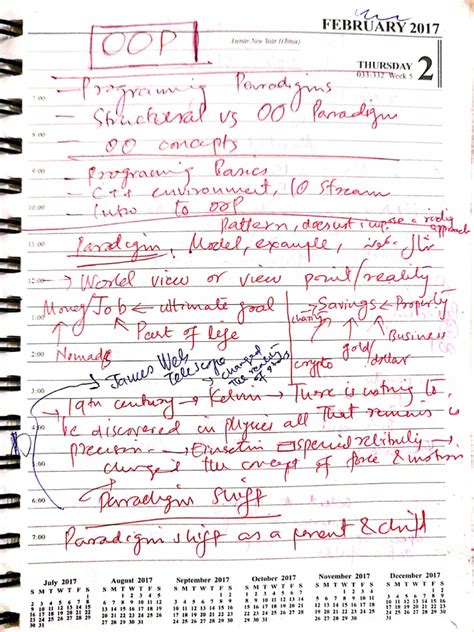 FEBRUARY 2017
OOP
Lunar New Year (China)
THURSDAY 2
033-332 Week 5
- Programing Paradigms
7:00
- Structural vs OO Paradigm
8:00
OO concepts
9:00
- Programing Basics
- C++ environment, IO Stream
10:00
- Intro to OOP
Pattern, doesnt impose a rigid approach
11:00
Paradigm, Model, example,
12:00
→ World view or view point/reality
1:00
Money/Job ← ultimate goal
Savings ← Property
charity
Part of life
2:00
Nomads
crypto
gold/dollar
Business
James Web Telescope
changed the reality of
3:00
→ 19th century → Kelvin → There is nothing to
4:00
be discovered in physics all That remains is
5:00
precision → Einsetin special relibuily →
changed the concept of force & motion
6:00
Paradigm shift
7:00
Paradigm shift as a parent &
July 2017
August 2017
September 2017
October 2017
November 2017
December 2017
S M T W T F S
S M T W T F S
S M T W T F S
S M T W T F S
S M T W T F S
S M T W T F S